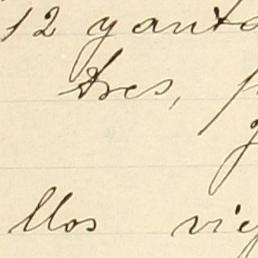 12 y anto
tres, p
y
llos vie